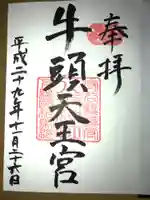 奉拝
牛頭天王宮
平成二十九年十一月二十六日